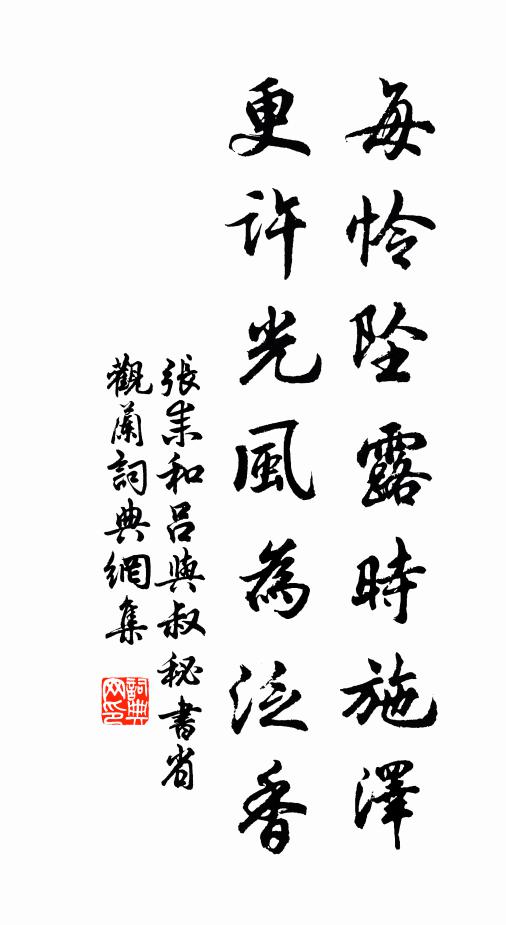 每怜坠露時施澤
更許光風為泛香
張耒和呂與叔秘書省
觀蘭詞典網集
詞典网印